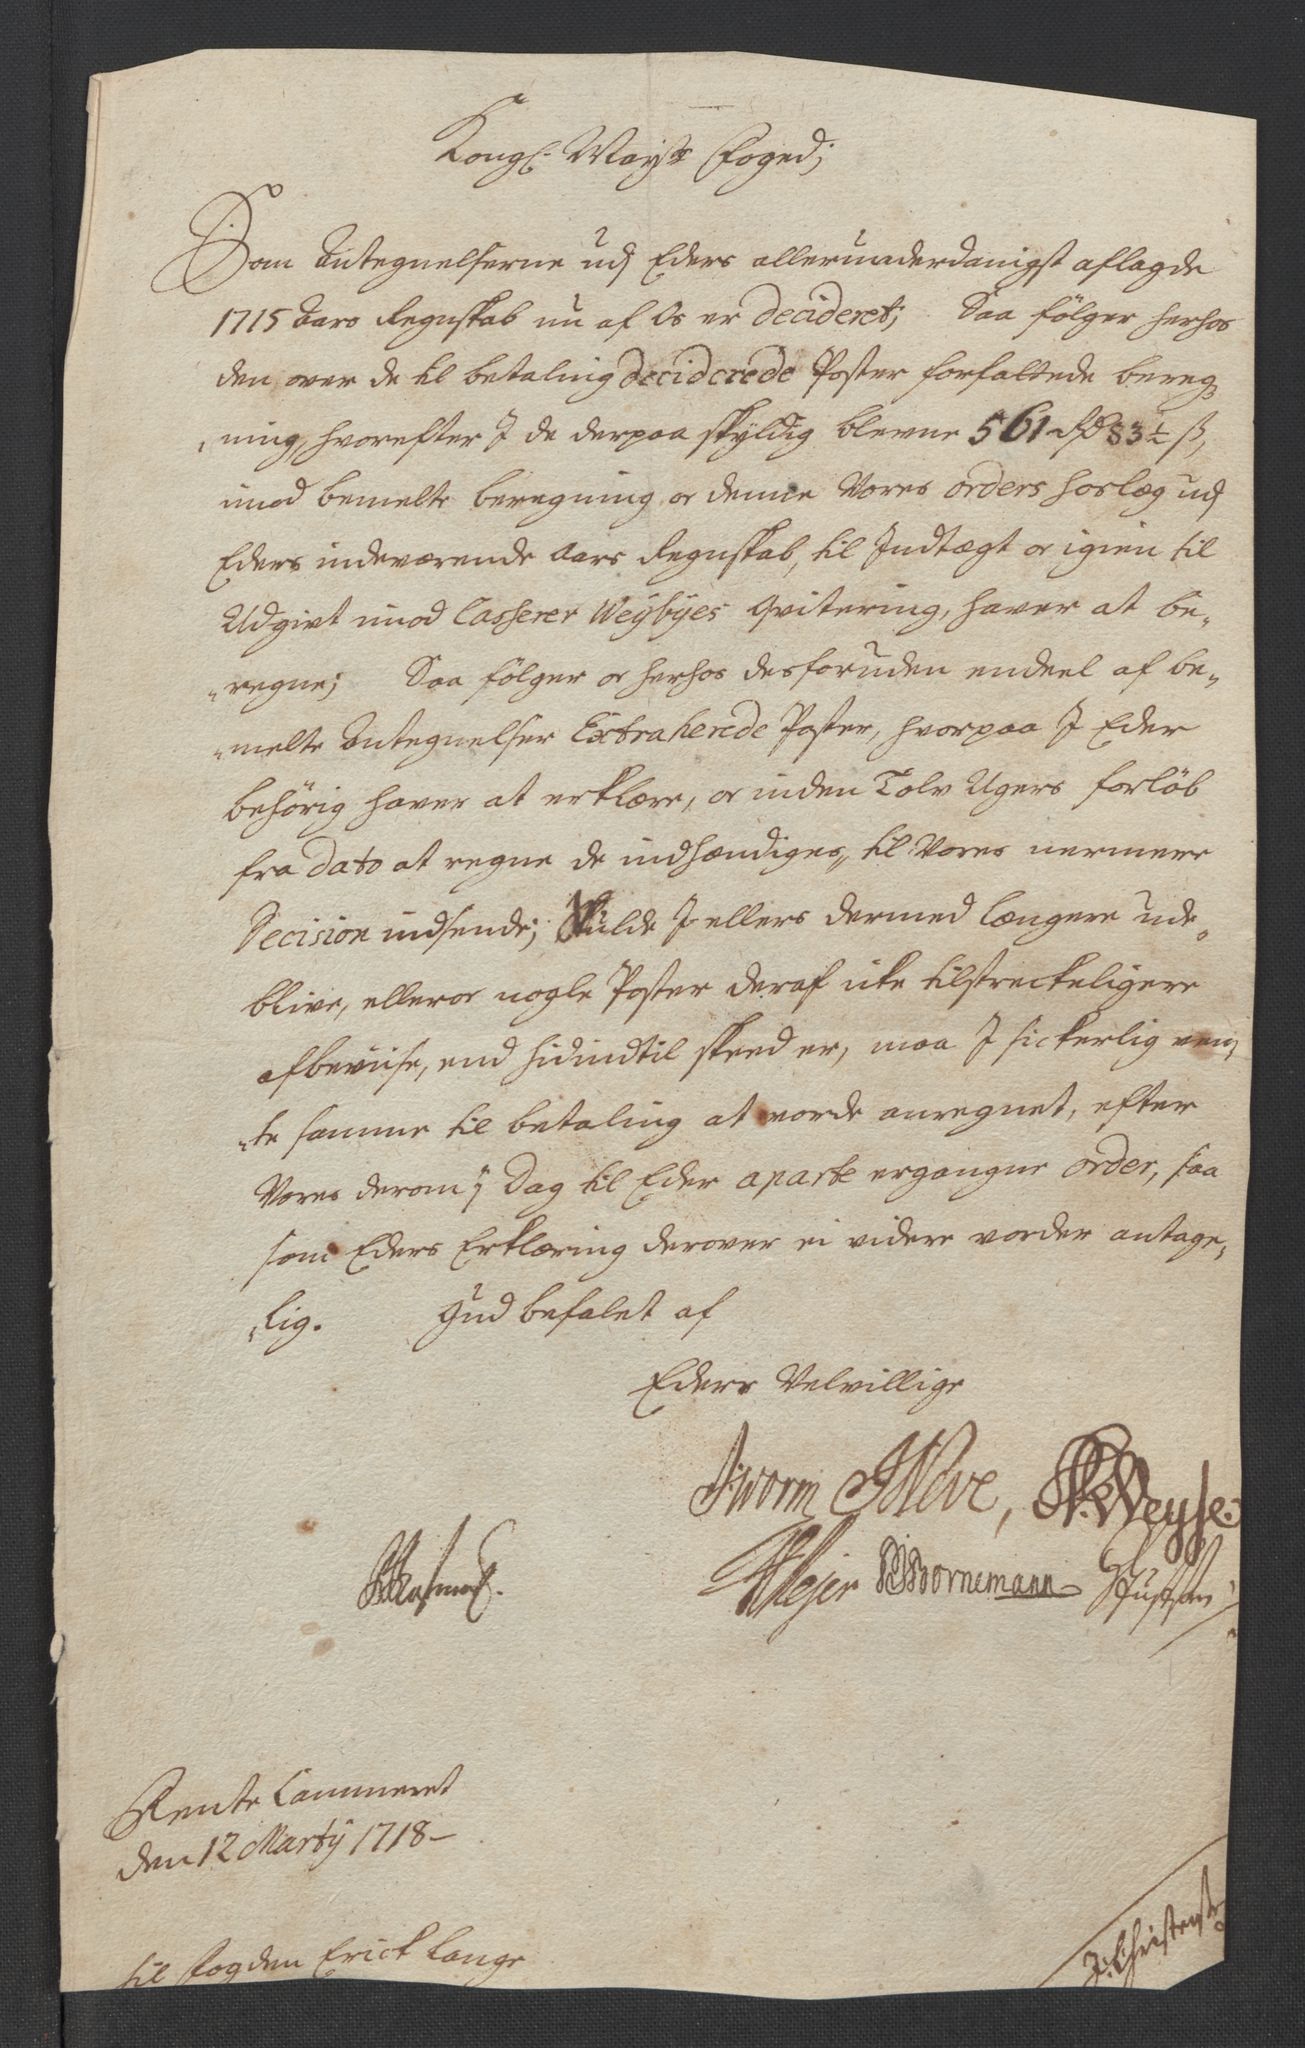 Kongl. Mayts Foged;
Som Antegnelserne udj Eders allerunderdanigst aflagde
1715 Aars Regnskab nu af Os er decideret; Saa fölger herhos
den over de til betaling deciderede Poster forfattede bereg-
ning, hvorefter J de derpaa skyldig blevne 561 Rdr 83½ ß,
imod bemelte beregning oc denne Vores orders hoslæg udj
Eders indeværende Aars Regnskab, til Jndtægt oc igien til
Udgivt imod Casserer Weybyes Qvitering, haver at be-
regne; Saa fölger oc herhos desforuden endeel af be-
melte Antegnelser Extraherede Poster, hvorpaa J Eder
behörig haver at erklære, oc inden Tolv Ugers forlöb
fra dato at regne de indhændiges, til Vores nermere
Decision indsende; Skulde J ellers dermed længere ude-
blive, eller oc nogle Poster deraf icke tilstreckeligere
afbeviise, end hidindtil skeed er, maa J sickerlig ven-
te samme til betaling at vorde anregnet, efter
Vores derom j Dag til Eder aparte ergangne order, saa
som Eders Erklæring derover ei videre vorder antage-
lig. Gud befalet af
Eders Velvillige
Jworm Neve, Weyse.
Mejer Bornemann
Rente Cammeret
den 12 Martij 1718
til Fogden Erick Lange
J. Christensen